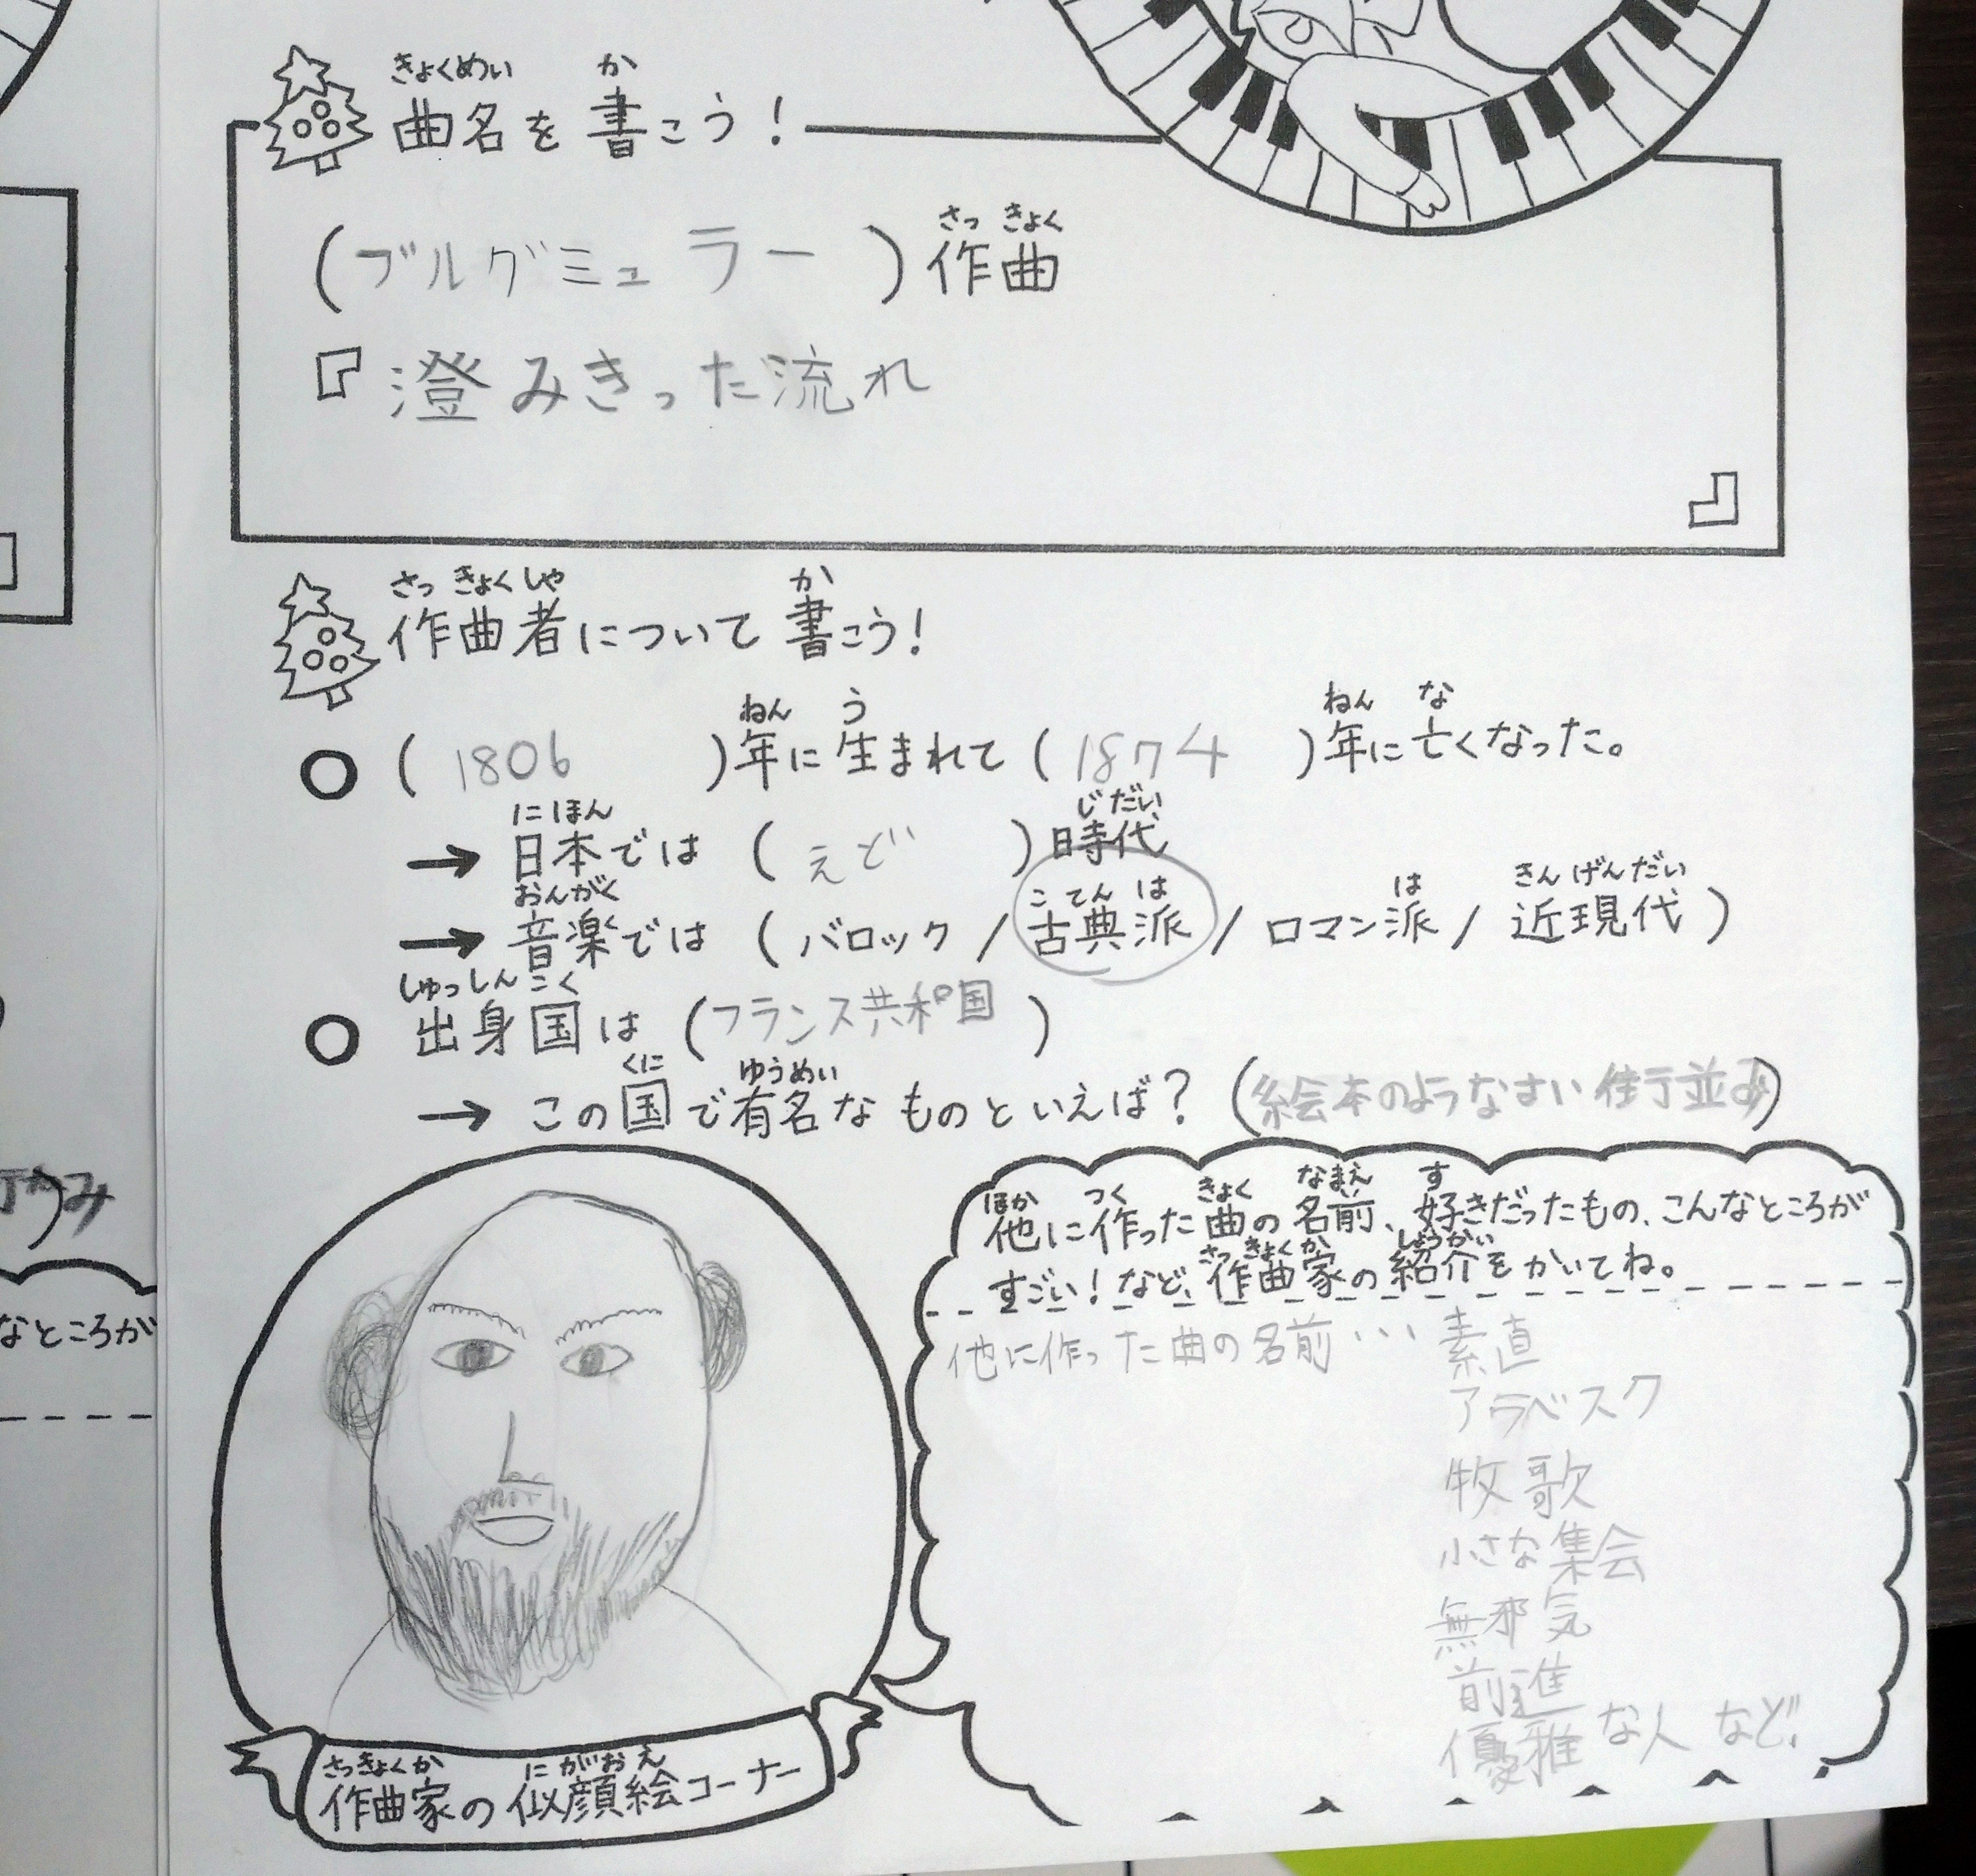 きょくめい か
曲名を書こう！
さっ きょく
(ブルグミュラー)作曲
『澄みきった流れ
』
さっ きょく しゃ か
作曲者について書こう！
ねん う ねん な
○(1806)年に生まれて(1874)年に亡くなった。
にほん じだい
→日本では(えど)時代
おんがく こてんは は きんげんだい
→音楽では(バロック/古典派/ロマン派/近現代)
しゅっしんこく
○出身国は(フランス共和国)
くに ゆうめい
→この国で有名なものといえば？(絵本のような 街並み)
ほか つく きょく なまえ す
他に作った曲の名前、好きだったもの、こんなところが
さっきょくか しょうかい
すごい！など、作曲家の紹介をかいてね。
他に作った曲の名前・・・素直
アラベスク
牧歌
小さな集会
無邪気
前進
優雅な人 など、
さっきょくか にがおえ
作曲家の似顔絵コーナー
なところが